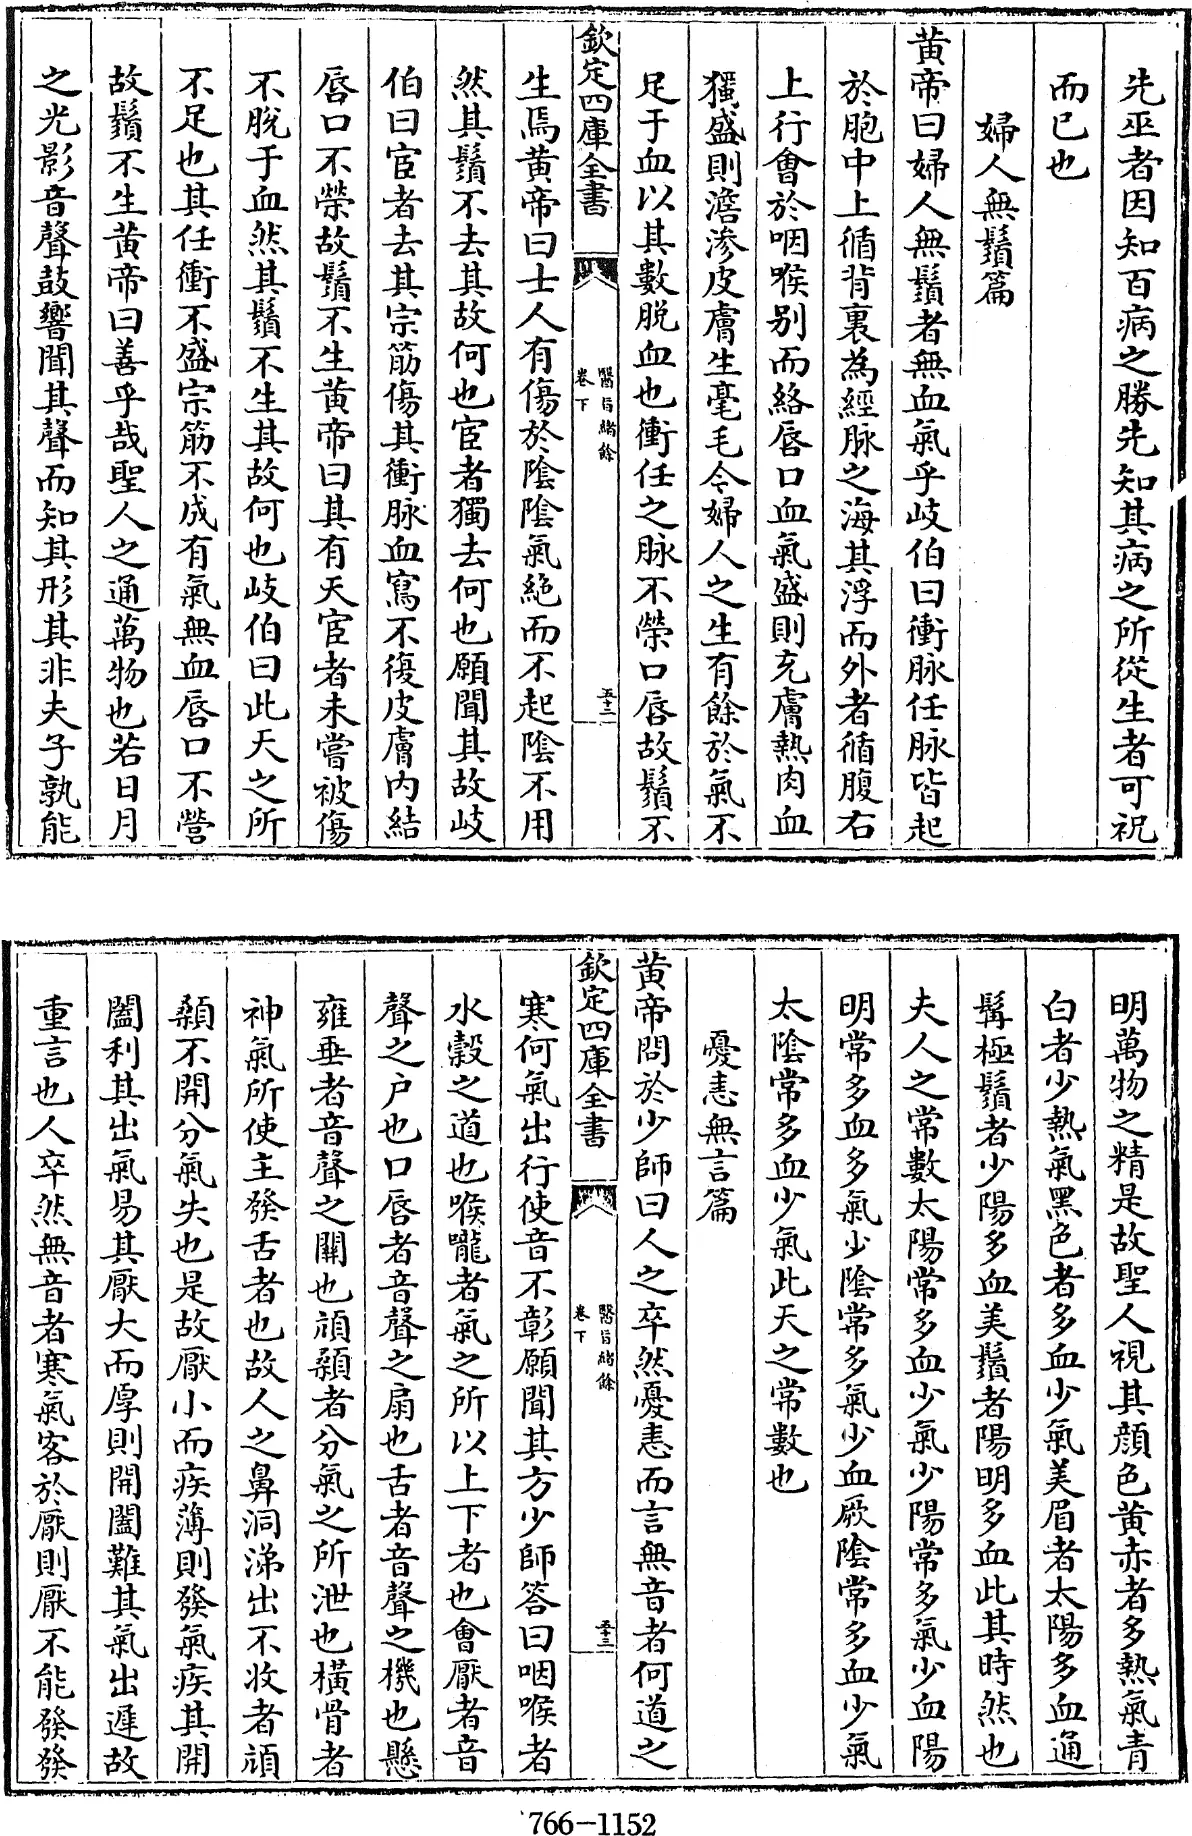 先巫者因知百病之勝先知其病之所從生者可祝
而已也
婦人無鬚篇
黄帝曰婦人無鬚者無血氣乎岐伯曰衝脉任脉皆起
於胞中上循背裏為經脉之海其浮而外者循腹右
上行會於咽喉别而絡唇口血氣盛則充膚熱肉血
獨盛則澹滲皮膚生毫毛今婦人之生有餘於氣不
足于血以其數脱血也衝任之脉不榮口唇故鬚不
欽定四庫全書
醫旨緒餘
卷下
五十三
生焉黄帝曰士人有傷於陰陰氣絶而不起陰不用
然其鬚不去其故何也宦者獨去何也願聞其故岐
伯曰宦者去其宗筋傷其衝脉血寫不復皮膚内結
唇口不榮故鬚不生黄帝曰其有天宦者未嘗被傷
不脱于血然其鬚不生其故何也岐伯曰此天之所
不足也其任衝不盛宗筋不成有氣無血唇口不營
故鬚不生黄帝曰善乎哉聖人之通萬物也若日月
之光影音聲鼓響聞其聲而知其形其非夫子孰能
明萬物之精是故聖人視其顔色黄赤者多熱氣青
白者少熱氣黑色者多血少氣美眉者太陽多血通
髯極鬚者少陽多血美鬚者陽明多血此其時然也
夫人之常數太陽常多血少氣少陽常多氣少血陽
明常多血多氣少陰常多氣少血厥陰常多血少氣
太陰常多血少氣此天之常數也
憂恚無言篇
黄帝問於少師曰人之卒然憂恚而言無音者何道之
欽定四庫全書
醫旨緒餘
卷下
五十三
寒何氣出行使音不彰願聞其方少師答曰咽喉者
水穀之道也喉嚨者氣之所以上下者也會厭者音
聲之户也口唇者音聲之扇也舌者音聲之機也懸
雍垂者音聲之關也頏顙者分氣之所泄也横骨者
神氣所使主發舌者也故人之鼻洞涕出不收者頏
顙不開分氣失也是故厭小而疾薄則發氣疾其開
闔利其出氣易其厭大而厚則開闔難其氣出遲故
重言也人卒然無音者寒氣客於厭則厭不能發發
766-1152